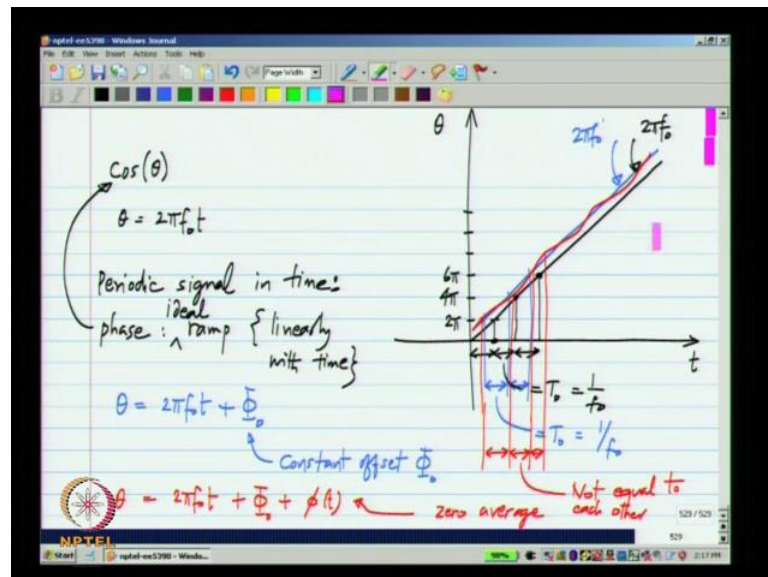 nptel-ee5390 - Windows Journal
File Edit View Insert Actions Tools Help
Page Width
Cos(θ)
θ = 2πf₀t
Periodic signal in time:
phase : ideal ramp { linearly
with time }
θ = 2πf₀t + Φ₀
Constant offset Φ₀
θ = 2πf₀t + Φ₀ + ϕ(t)
zero average
θ
2πf₀
2πf₀
6π
4π
2π
t
= T₀ = 1/f₀
= T₀ = 1/f₀
Not equal to
each other
529 / 529
529
NPTEL
Start
nptel-ee5390 - Windo...
2:17 PM